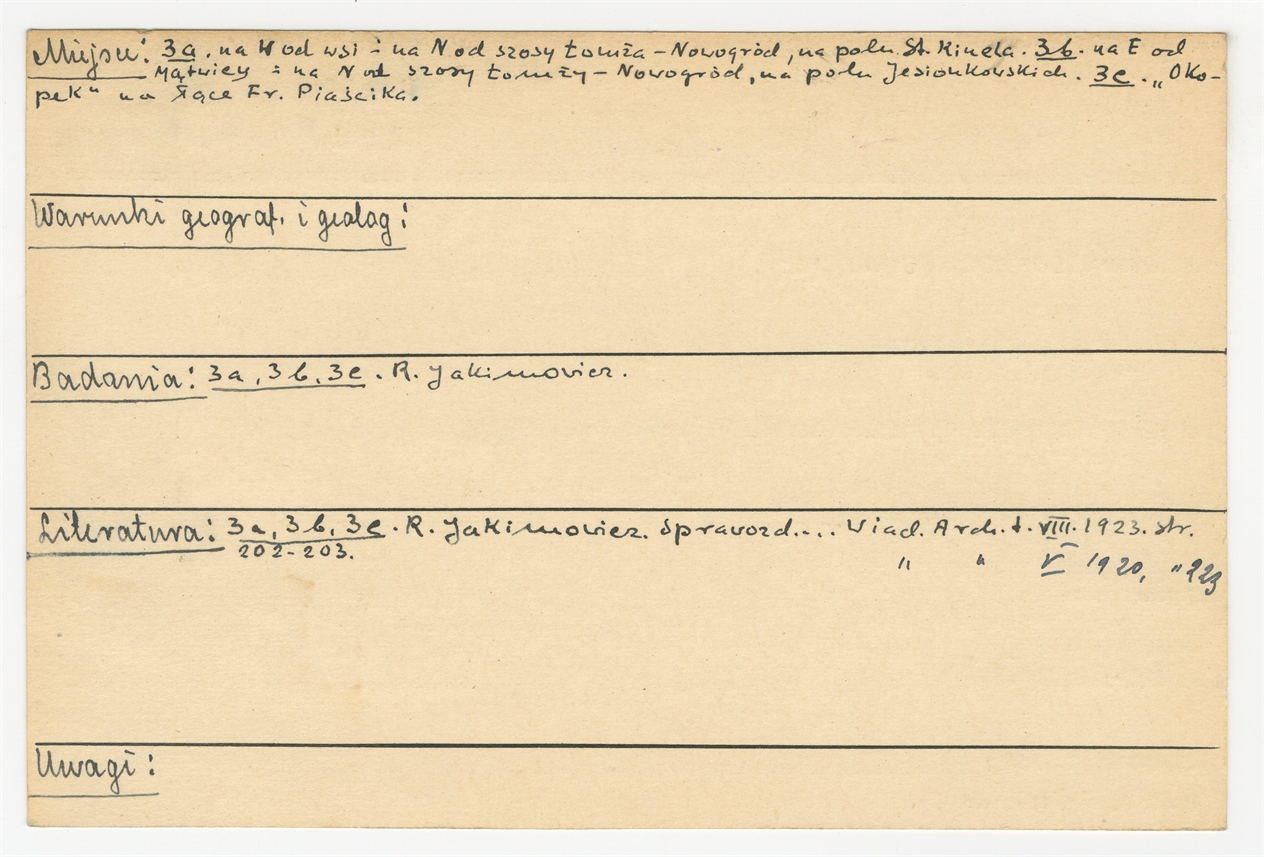 Miejsce: 3a. na W od wsi i na N od szosy Łomża – Nowogród, na polu St. Kinela. 3b. na E od
Mątwicy i na N od szosy Łomży – Nowogród, na polu Jesionkowskich. 3c. „Oko-
pek" na łące Fr. Piaścika.
Warunki geograf. i geolog:
Badania: 3a, 3b, 3c. R. Jakimowicz.
Literatura: 3a, 3b, 3c. R. Jakimowicz. Sprawozd.... Wiad. Arch. t. VIII. 1923. str.
202-203.
" " V 1920, " 223
Uwagi: